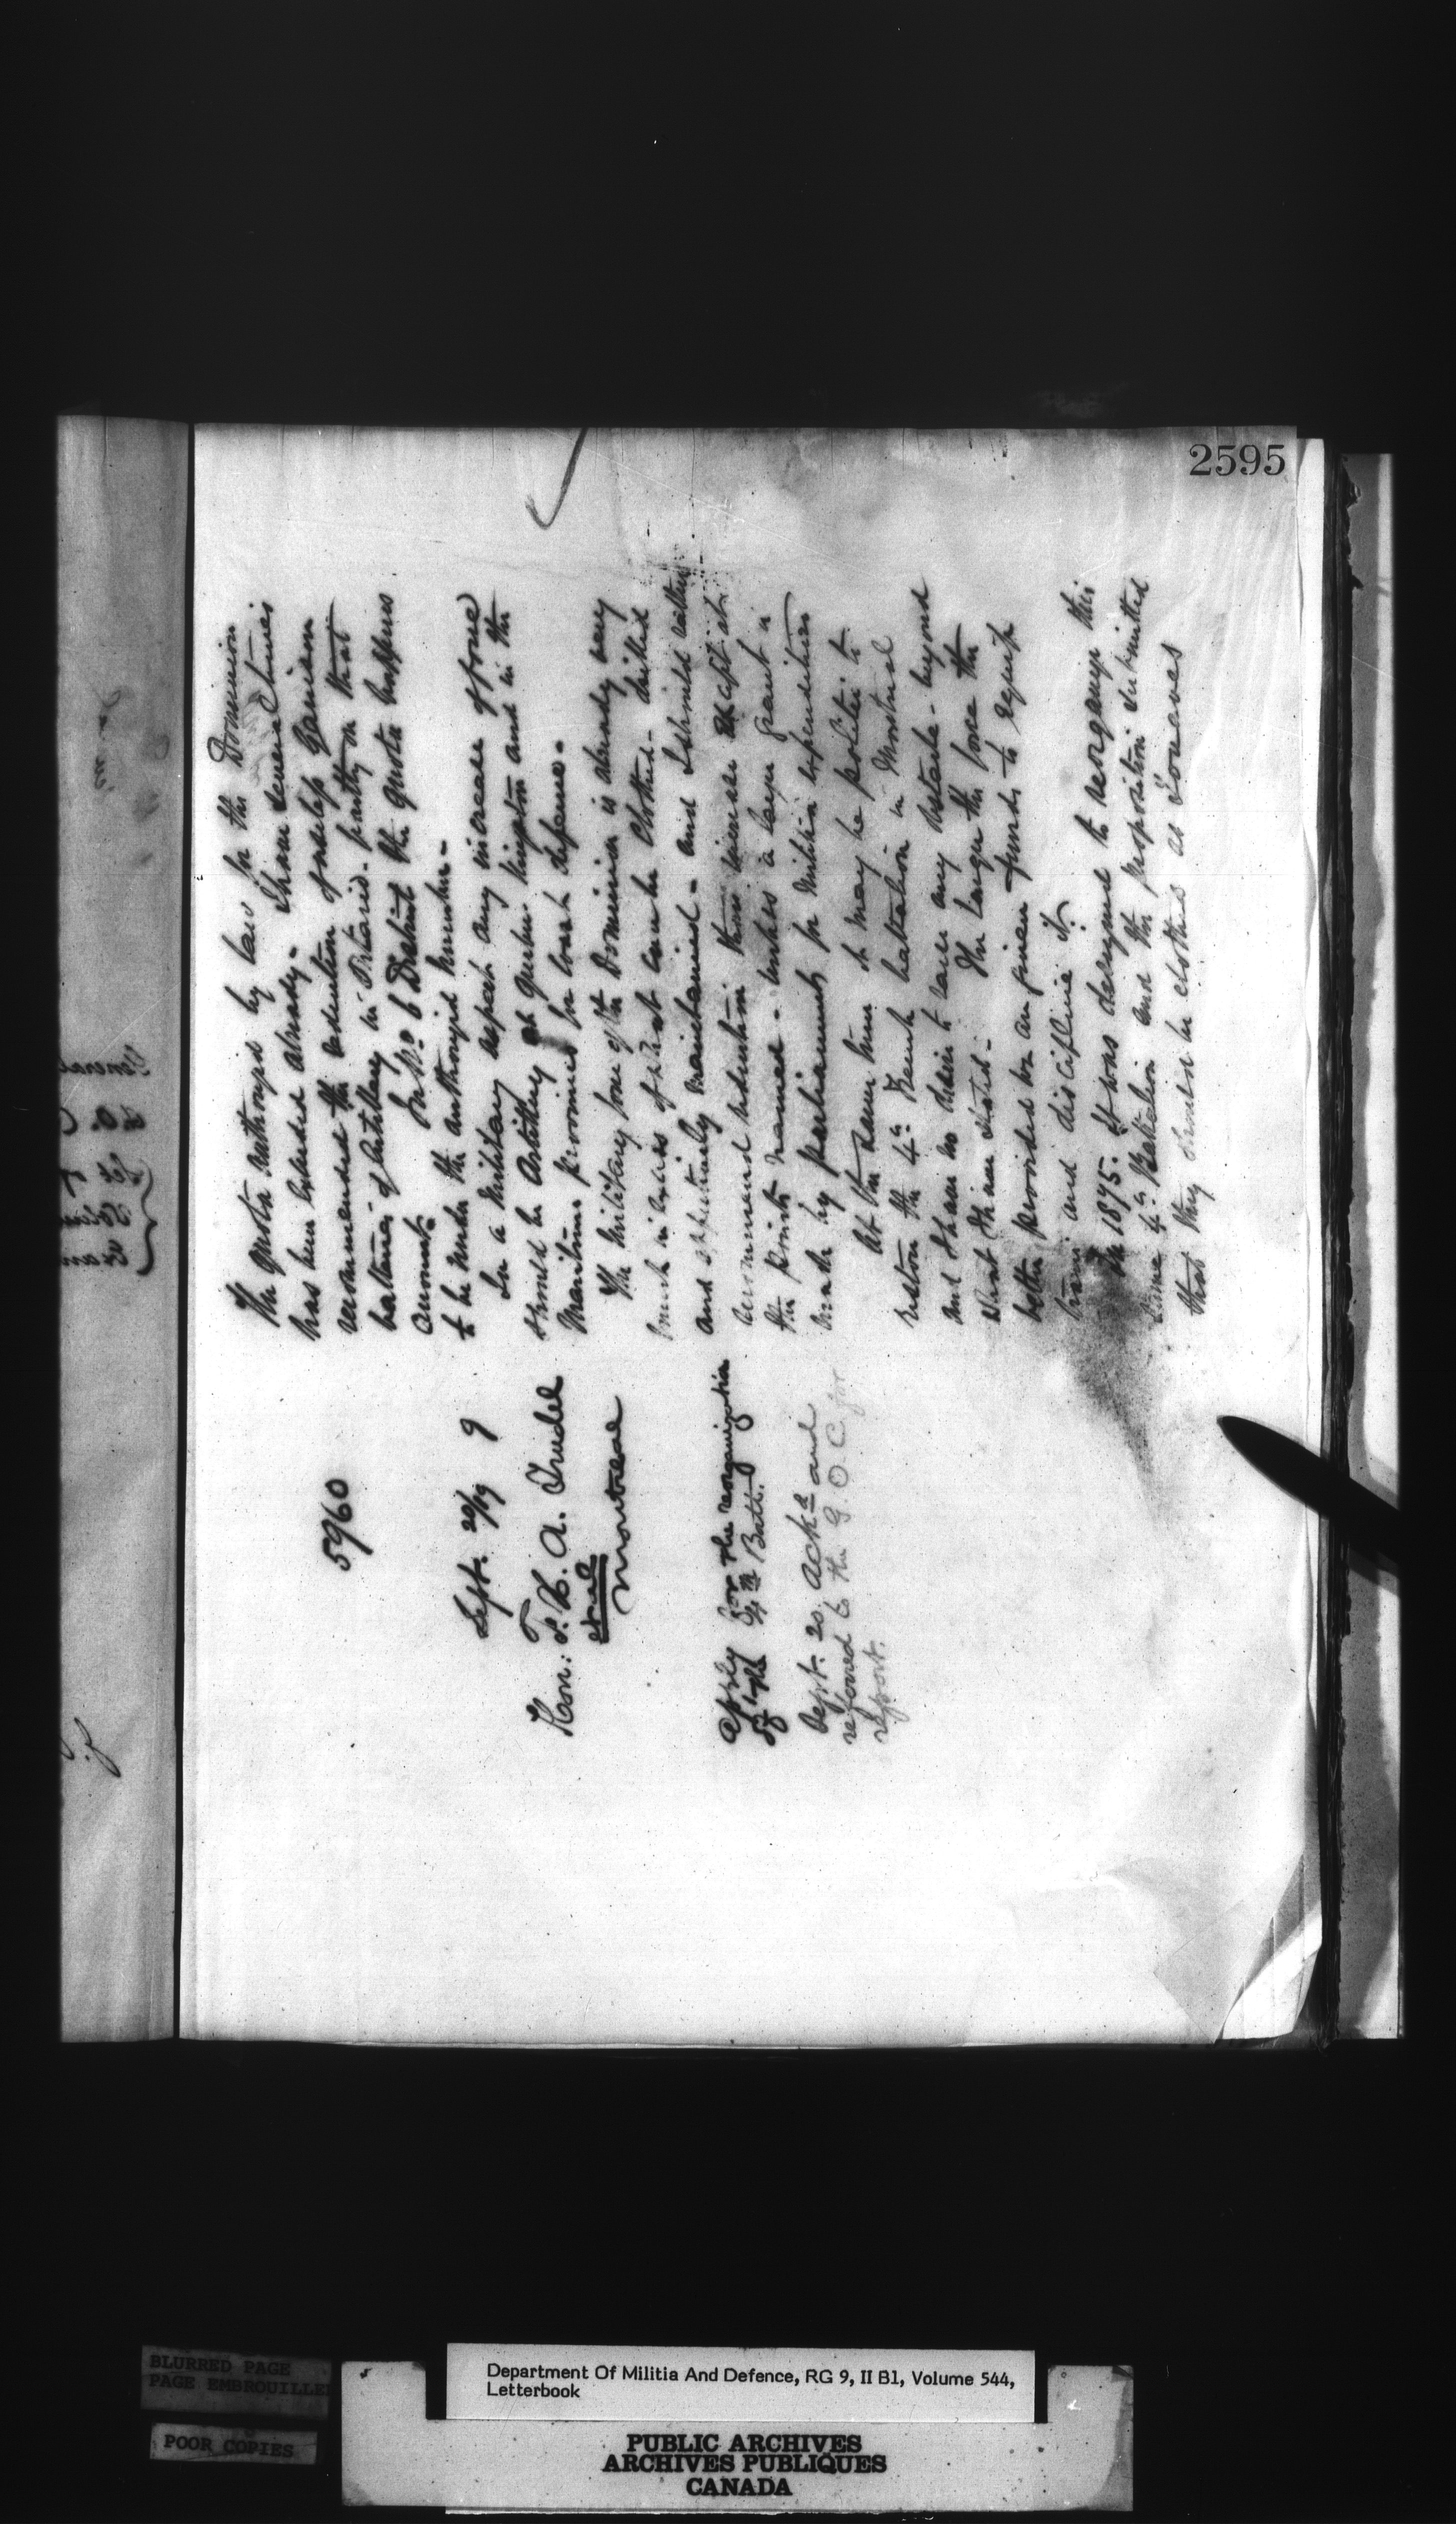 2595
5960
Sept. 20/79 9
Hon: F. X. A. Trudel
et al
Montreal
Apply for the reorganization
of the 4th Batt.
Sept. 20. Ackd and
referred to the G. O. C. for
report.
The quota authorized by law for the Dominion
has been exceeded already - I have several times
recommended the reduction of useless Garrison
batteries of Artillery in Ontario - partly on that
account. In No. 6 District the quota happens
to be under the authorized number -
In a military aspect any increase of force
should be Artillery at Quebec Kingston and in the
Maritime provinces for coast defence -
The military force of the Dominion is already very
much in excess of what can be clothed - drilled
and effectively maintained - and I should rather
recommend reduction than increase except at
the points named - unless a larger grant is
made by parliament for Militia expenditure
At the same time it may be politic to
restore the 4th French battalion in Montreal
and I have no desire to raise any obstacle - beyond
what I have stated - The larger the force the
better provided you are given funds to equip
train and discipline it.
In 1875. it was designed to reorganize this
same 4th Battalion and the proposition submitted
that they should be clothed as Zouaves
BLURRED PAGE
PAGE EMBROUILLEE
POOR COPIES
Department Of Militia And Defence, RG 9, II B1, Volume 544,
Letterbook
PUBLIC ARCHIVES
ARCHIVES PUBLIQUES
CANADA